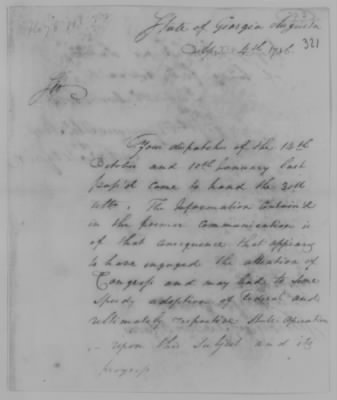 State of Georgia Augusta
4th 1786
321
Sir
Your dispatches of the 14th
October and 10th January last
pass'd came to hand the 30th
ulto. The Information contain'd
in the former communication is
of that consequence that appears
to have engaged the attention of
Congress and may lead to some
speedy adoption of federal and
ultimately respective State Operation
upon this subject and its
progress